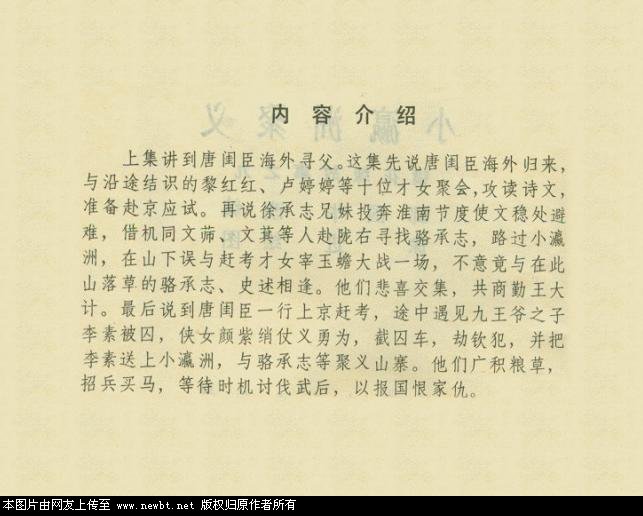 内容介绍
上集讲到唐闺臣海外寻父。这集先说唐闺臣海外归来，
与沿途结识的黎红红、卢婷婷等十位才女聚会，攻读诗文，
准备赴京应试。再说徐承志兄妹投奔淮南节度使文稳处避
难，借机同文𦶜、文菒等人赴陇右寻找骆承志，路过小瀛
洲，在山下误与赶考才女宰玉蟾大战一场，不意竟与在此
山落草的骆承志、史述相逢。他们悲喜交集，共商勤王大
计。最后说到唐闺臣一行上京赶考，途中遇见九王爷之子
李素被囚，侠女颜紫绡仗义勇为，截囚车，劫钦犯，并把
李素送上小瀛洲，与骆承志等聚义山寨。他们广积粮草，
招兵买马，等待时机讨伐武后，以报国恨家仇。
本图片由网友上传至 www.newbt.net 版权归原作者所有